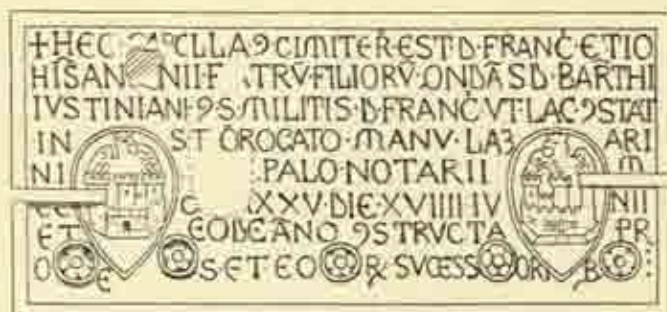 +HEC CLLA ꝯ CIMITER EST D·FRANC·ET IO
HIS AN NII·F ATRV·FILIORV·ONDAS D·BARTHI
IVSTINIANI·ꝯ·S·MILITIS·D·FRANC·VT·LAC ꝯSTAT
IN ST ROGATO·MANV·LAZ ARI
NI PALO·NOTARII M
C XXV·DIE·XVIIII·IV NII
ET EODE ANO ꝯSTRVCTA PR
O E S·ET EO SVCESS ORI B